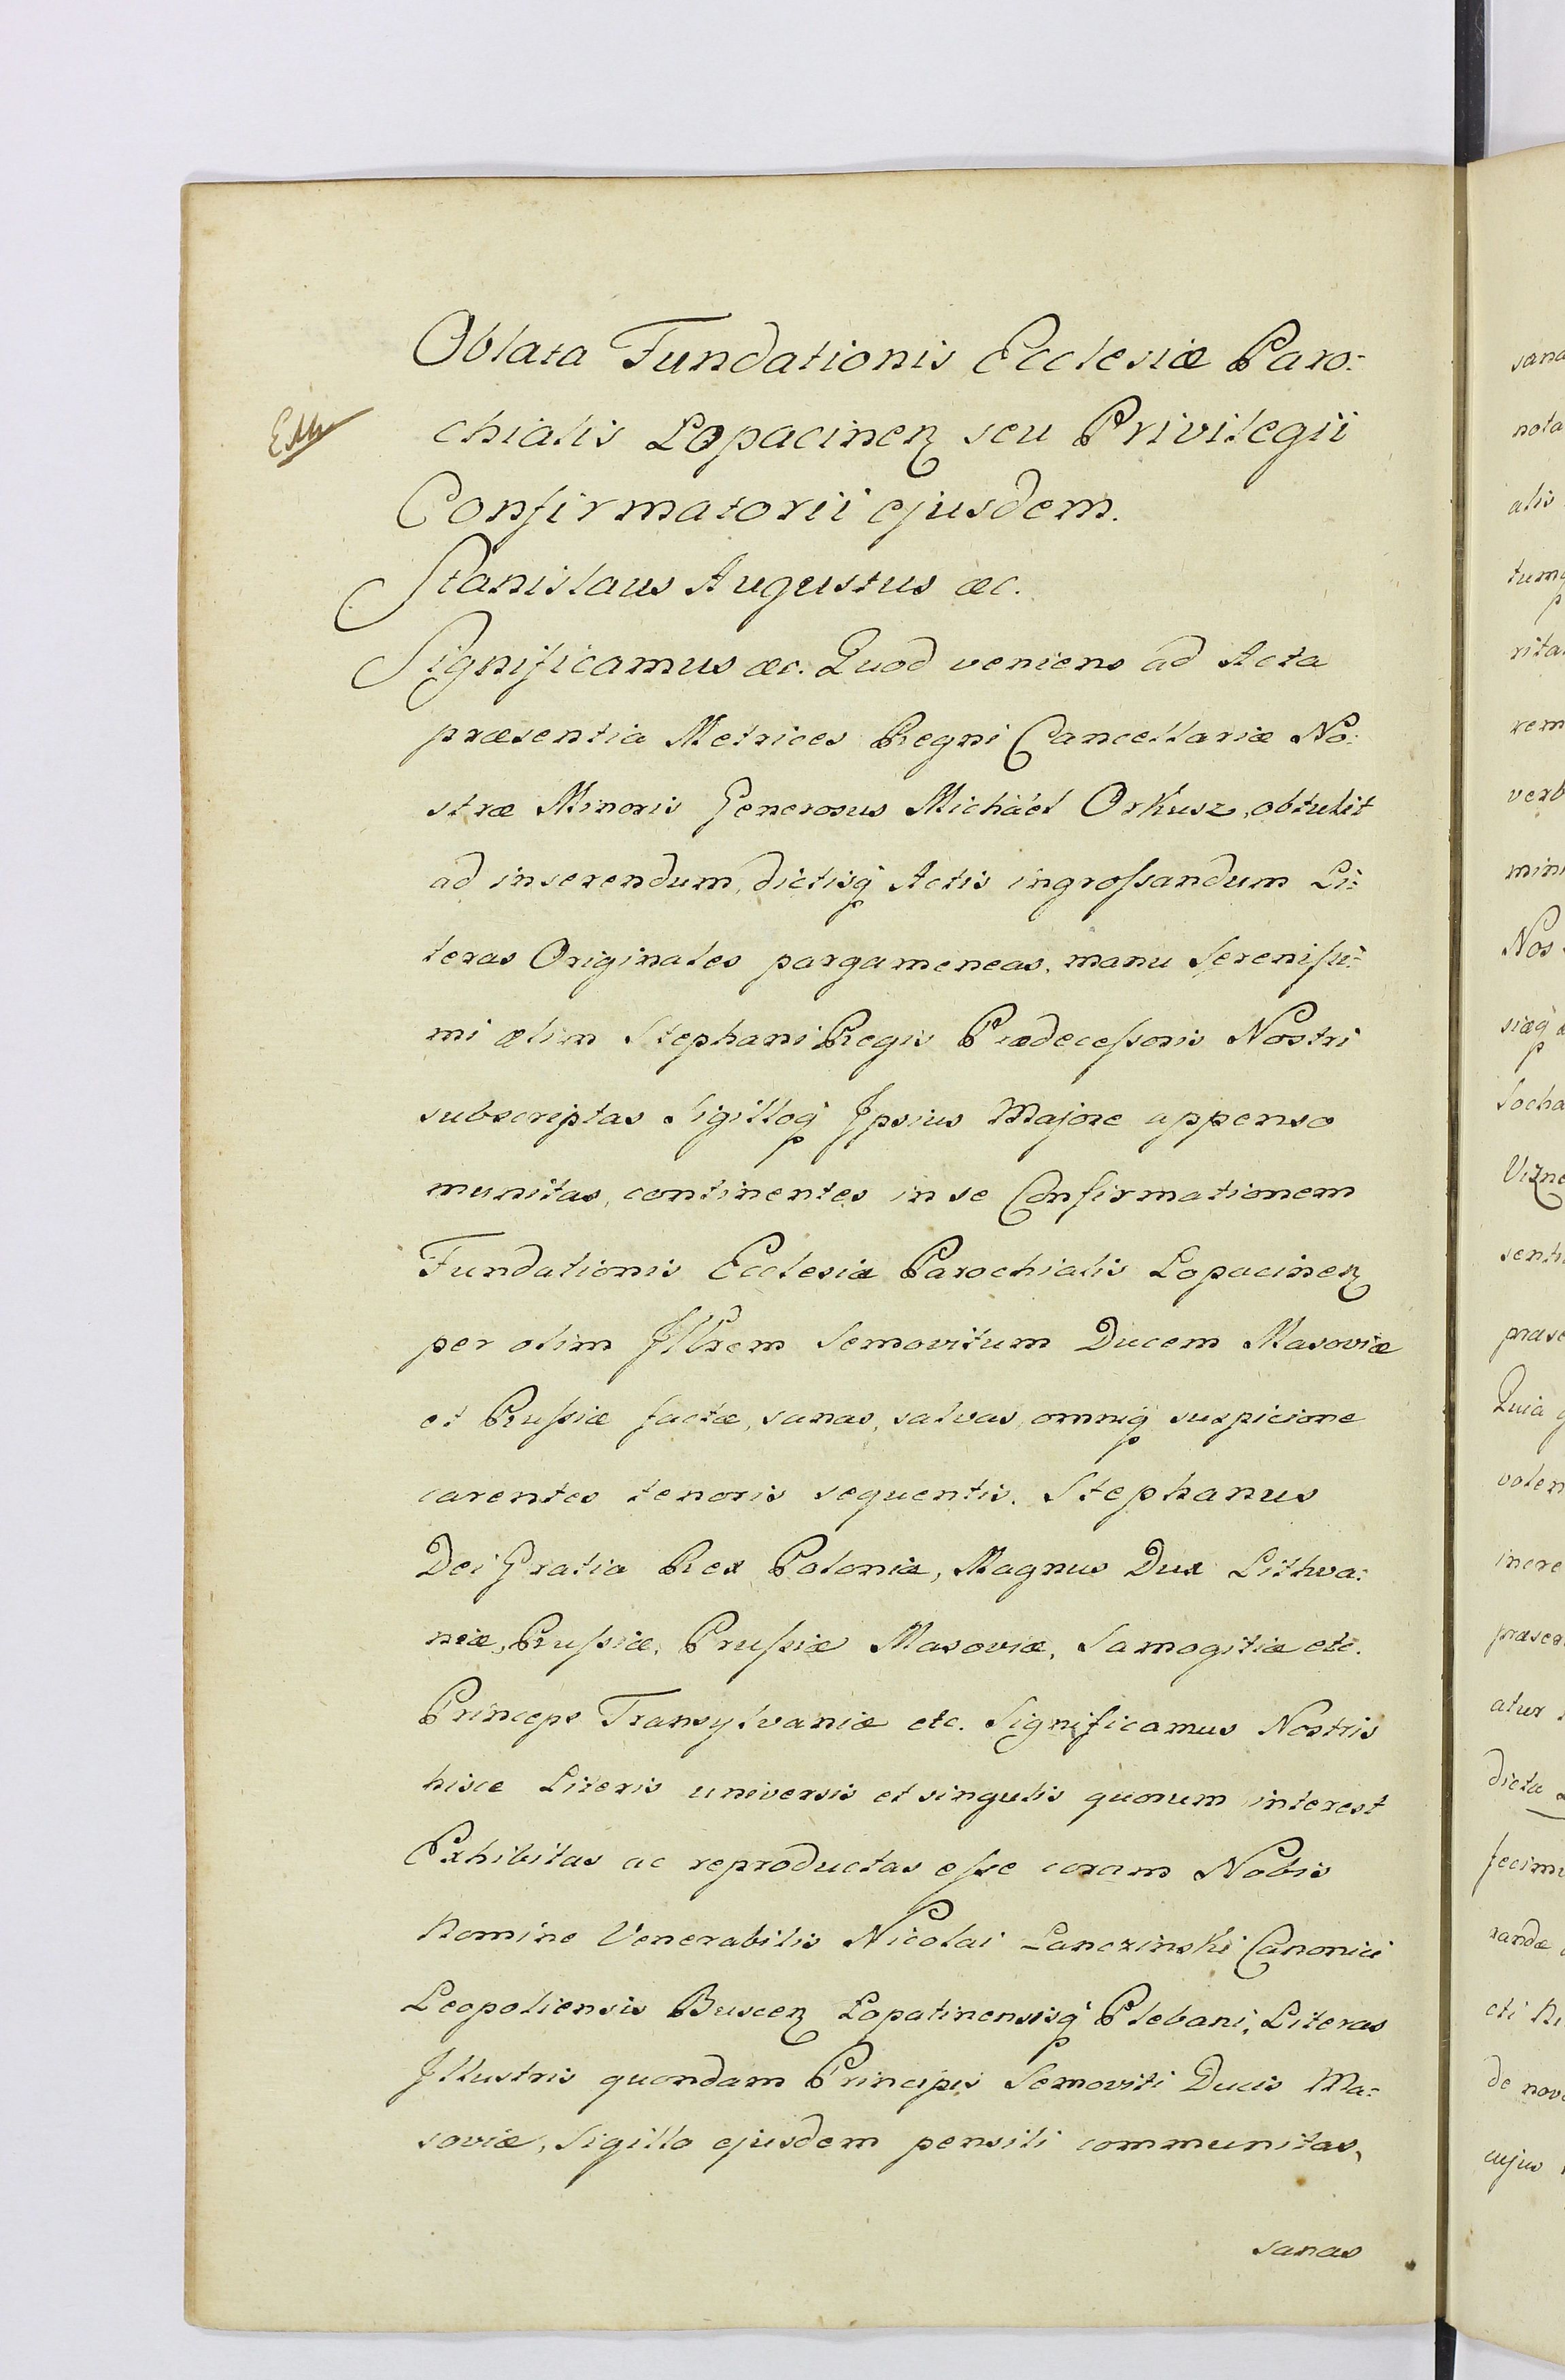 Oblata Fundationis Ecclesiæ Paro:
chialis Lopacinen̄ seu Privilegii
Confirmatorii ejusdem.
Stanislaus Augustus &c.
Significamus &c. Quod veniens ad Acta
præsentia Metrices Regni Cancellariæ No:
stræ Minoris Generosus Michäel Orkusz, obtulit
ad inserendum, dictisq Actis ingrossandum Li:
teras Originales pargameneas, manu Serenissi:
mi olim Stephani Regis Prædecessoris Nostri
subscriptas Sigilloq Ipsius Majore appenso
munitas, continentes in se Confirmationem
Fundationis Ecclesiæ Parochialis Lopacinen̄
per olim Illrem Semovitum Ducem Masoviæ
et Russiæ factæ, sanas, salvas, omniq suspicione
carentes tenoris sequentis. Stephanus
Dei Gratia Rex Poloniæ, Magnus Dux Lithva:
niæ, Russiæ, Prussiæ Masoviæ, Samogitiæ etc.
Princeps Transylvaniæ etc. Significamus Nostris
hisce Literis universis et singulis quorum interest
Exhibitas ac reproductas esse coram Nobis
Nomine Venerabilis Nicolai Lanczinski Canonici
Leopoliensis Buscen̄ Lopatinensisq Plebani, Literas
Illustris quondam Principis Semoviti Ducis Ma:
soviæ, Sigillo ejusdem pensili communitas,
sanas